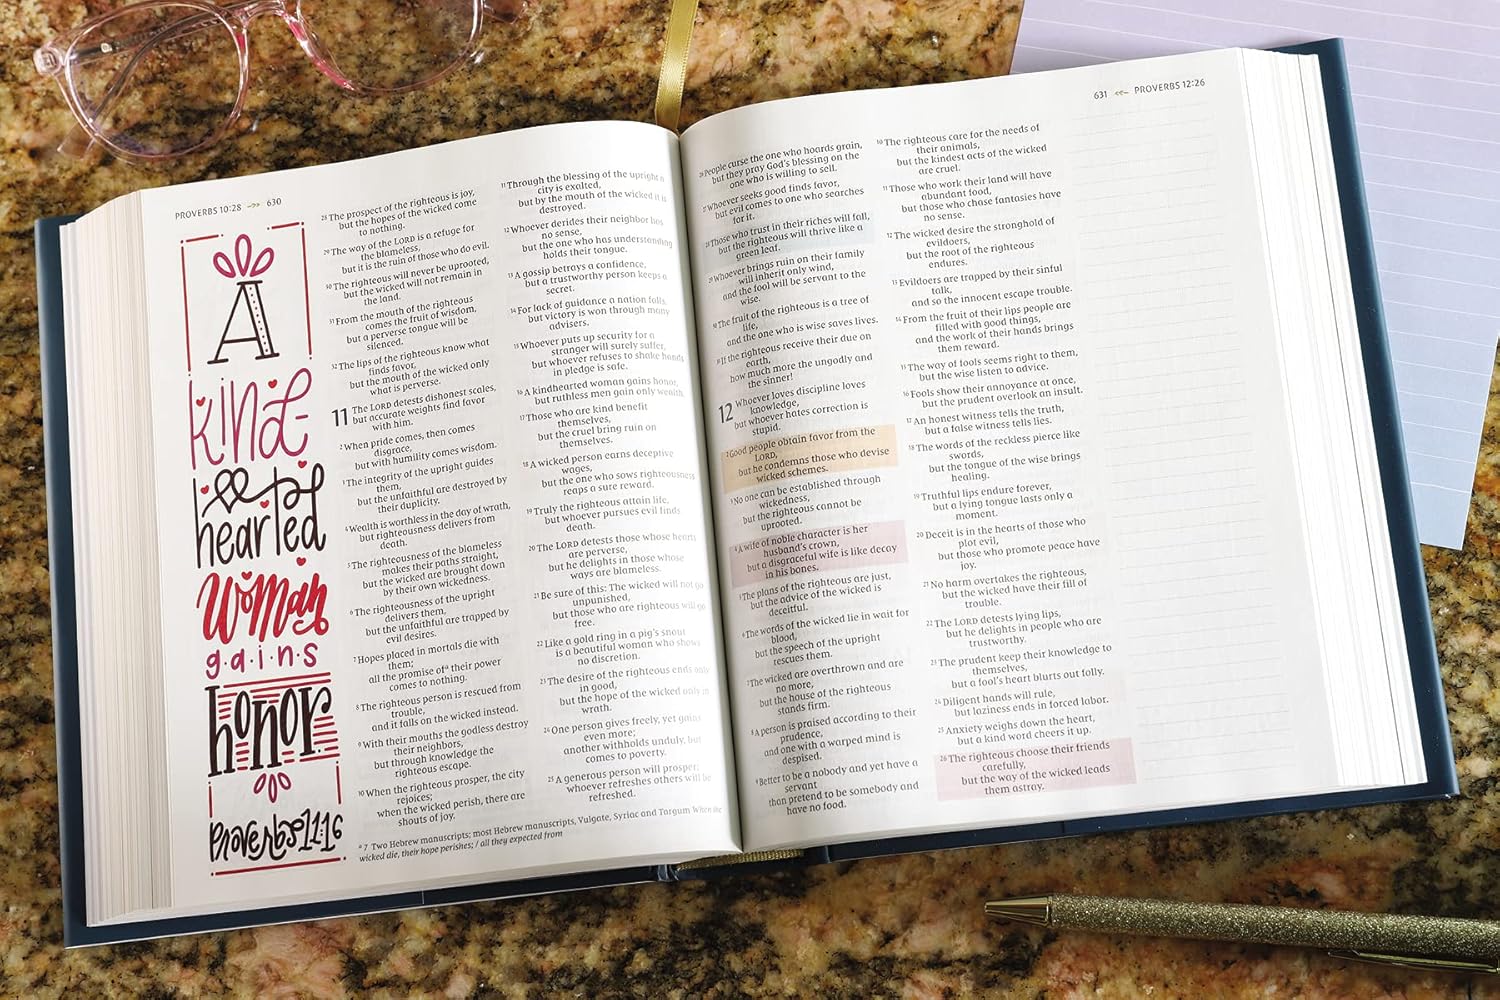 PROVERBS 10:28 630
A
kind-
hearted
woman
gains
honor
Proverbs 11:16
28 The prospect of the righteous is joy,
but the hopes of the wicked come
to nothing.
29 The way of the LORD is a refuge for
the blameless,
but it is the ruin of those who do evil.
30 The righteous will never be uprooted,
but the wicked will not remain in
the land.
31 From the mouth of the righteous
comes the fruit of wisdom,
but a perverse tongue will be
silenced.
32 The lips of the righteous know what
finds favor,
but the mouth of the wicked only
what is perverse.
11 The LORD detests dishonest scales,
but accurate weights find favor
with him.
2 When pride comes, then comes
disgrace,
but with humility comes wisdom.
3 The integrity of the upright guides
them,
but the unfaithful are destroyed by
their duplicity.
4 Wealth is worthless in the day of wrath,
but righteousness delivers from
death.
5 The righteousness of the blameless
makes their paths straight,
but the wicked are brought down
by their own wickedness.
6 The righteousness of the upright
delivers them,
but the unfaithful are trapped by
evil desires.
7 Hopes placed in mortals die with
them;
all the promise of a their power
comes to nothing.
8 The righteous person is rescued from
trouble,
and it falls on the wicked instead.
9 With their mouths the godless destroy
their neighbors,
but through knowledge the
righteous escape.
10 When the righteous prosper, the city
rejoices;
when the wicked perish, there are
shouts of joy.
11 Through the blessing of the upright a
city is exalted,
but by the mouth of the wicked it is
destroyed.
12 Whoever derides their neighbor has
no sense,
but the one who has understanding
holds their tongue.
13 A gossip betrays a confidence,
but a trustworthy person keeps a
secret.
14 For lack of guidance a nation falls,
but victory is won through many
advisers.
15 Whoever puts up security for a
stranger will surely suffer,
but whoever refuses to shake hands
in pledge is safe.
16 A kindhearted woman gains honor,
but ruthless men gain only wealth.
17 Those who are kind benefit
themselves,
but the cruel bring ruin on
themselves.
18 A wicked person earns deceptive
wages,
but the one who sows righteousness
reaps a sure reward.
19 Truly the righteous attain life,
but whoever pursues evil finds
death.
20 The LORD detests those whose hearts
are perverse,
but he delights in those whose
ways are blameless.
21 Be sure of this: The wicked will not go
unpunished,
but those who are righteous will go
free.
22 Like a gold ring in a pig's snout
is a beautiful woman who shows
no discretion.
23 The desire of the righteous ends only
in good,
but the hope of the wicked only in
wrath.
24 One person gives freely, yet gains
even more;
another withholds unduly, but
comes to poverty.
25 A generous person will prosper;
whoever refreshes others will be
refreshed.
a 7 Two Hebrew manuscripts; most Hebrew manuscripts, Vulgate, Syriac and Targum When the
wicked die, their hope perishes; / all they expected from
631 PROVERBS 12:26
26 People curse the one who hoards grain,
but they pray God's blessing on the
one who is willing to sell.
27 Whoever seeks good finds favor,
but evil comes to one who searches
for it.
28 Those who trust in their riches will fall,
but the righteous will thrive like a
green leaf.
29 Whoever brings ruin on their family
will inherit only wind,
and the fool will be servant to the
wise.
30 The fruit of the righteous is a tree of
life,
and the one who is wise saves lives.
31 If the righteous receive their due on
earth,
how much more the ungodly and
the sinner!
12 Whoever loves discipline loves
knowledge,
but whoever hates correction is
stupid.
2 Good people obtain favor from the
LORD,
but he condemns those who devise
wicked schemes.
3 No one can be established through
wickedness,
but the righteous cannot be
uprooted.
4 A wife of noble character is her
husband's crown,
but a disgraceful wife is like decay
in his bones.
5 The plans of the righteous are just,
but the advice of the wicked is
deceitful.
6 The words of the wicked lie in wait for
blood,
but the speech of the upright
rescues them.
7 The wicked are overthrown and are
no more,
but the house of the righteous
stands firm.
8 A person is praised according to their
prudence,
and one with a warped mind is
despised.
9 Better to be a nobody and yet have a
servant
than pretend to be somebody and
have no food.
10 The righteous care for the needs of
their animals,
but the kindest acts of the wicked
are cruel.
11 Those who work their land will have
abundant food,
but those who chase fantasies have
no sense.
12 The wicked desire the stronghold of
evildoers,
but the root of the righteous
endures.
13 Evildoers are trapped by their sinful
talk,
and so the innocent escape trouble.
14 From the fruit of their lips people are
filled with good things,
and the work of their hands brings
them reward.
15 The way of fools seems right to them,
but the wise listen to advice.
16 Fools show their annoyance at once,
but the prudent overlook an insult.
17 An honest witness tells the truth,
but a false witness tells lies.
18 The words of the reckless pierce like
swords,
but the tongue of the wise brings
healing.
19 Truthful lips endure forever,
but a lying tongue lasts only a
moment.
20 Deceit is in the hearts of those who
plot evil,
but those who promote peace have
joy.
21 No harm overtakes the righteous,
but the wicked have their fill of
trouble.
22 The LORD detests lying lips,
but he delights in people who are
trustworthy.
23 The prudent keep their knowledge to
themselves,
but a fool's heart blurts out folly.
24 Diligent hands will rule,
but laziness ends in forced labor.
25 Anxiety weighs down the heart,
but a kind word cheers it up.
26 The righteous choose their friends
carefully,
but the way of the wicked leads
them astray.